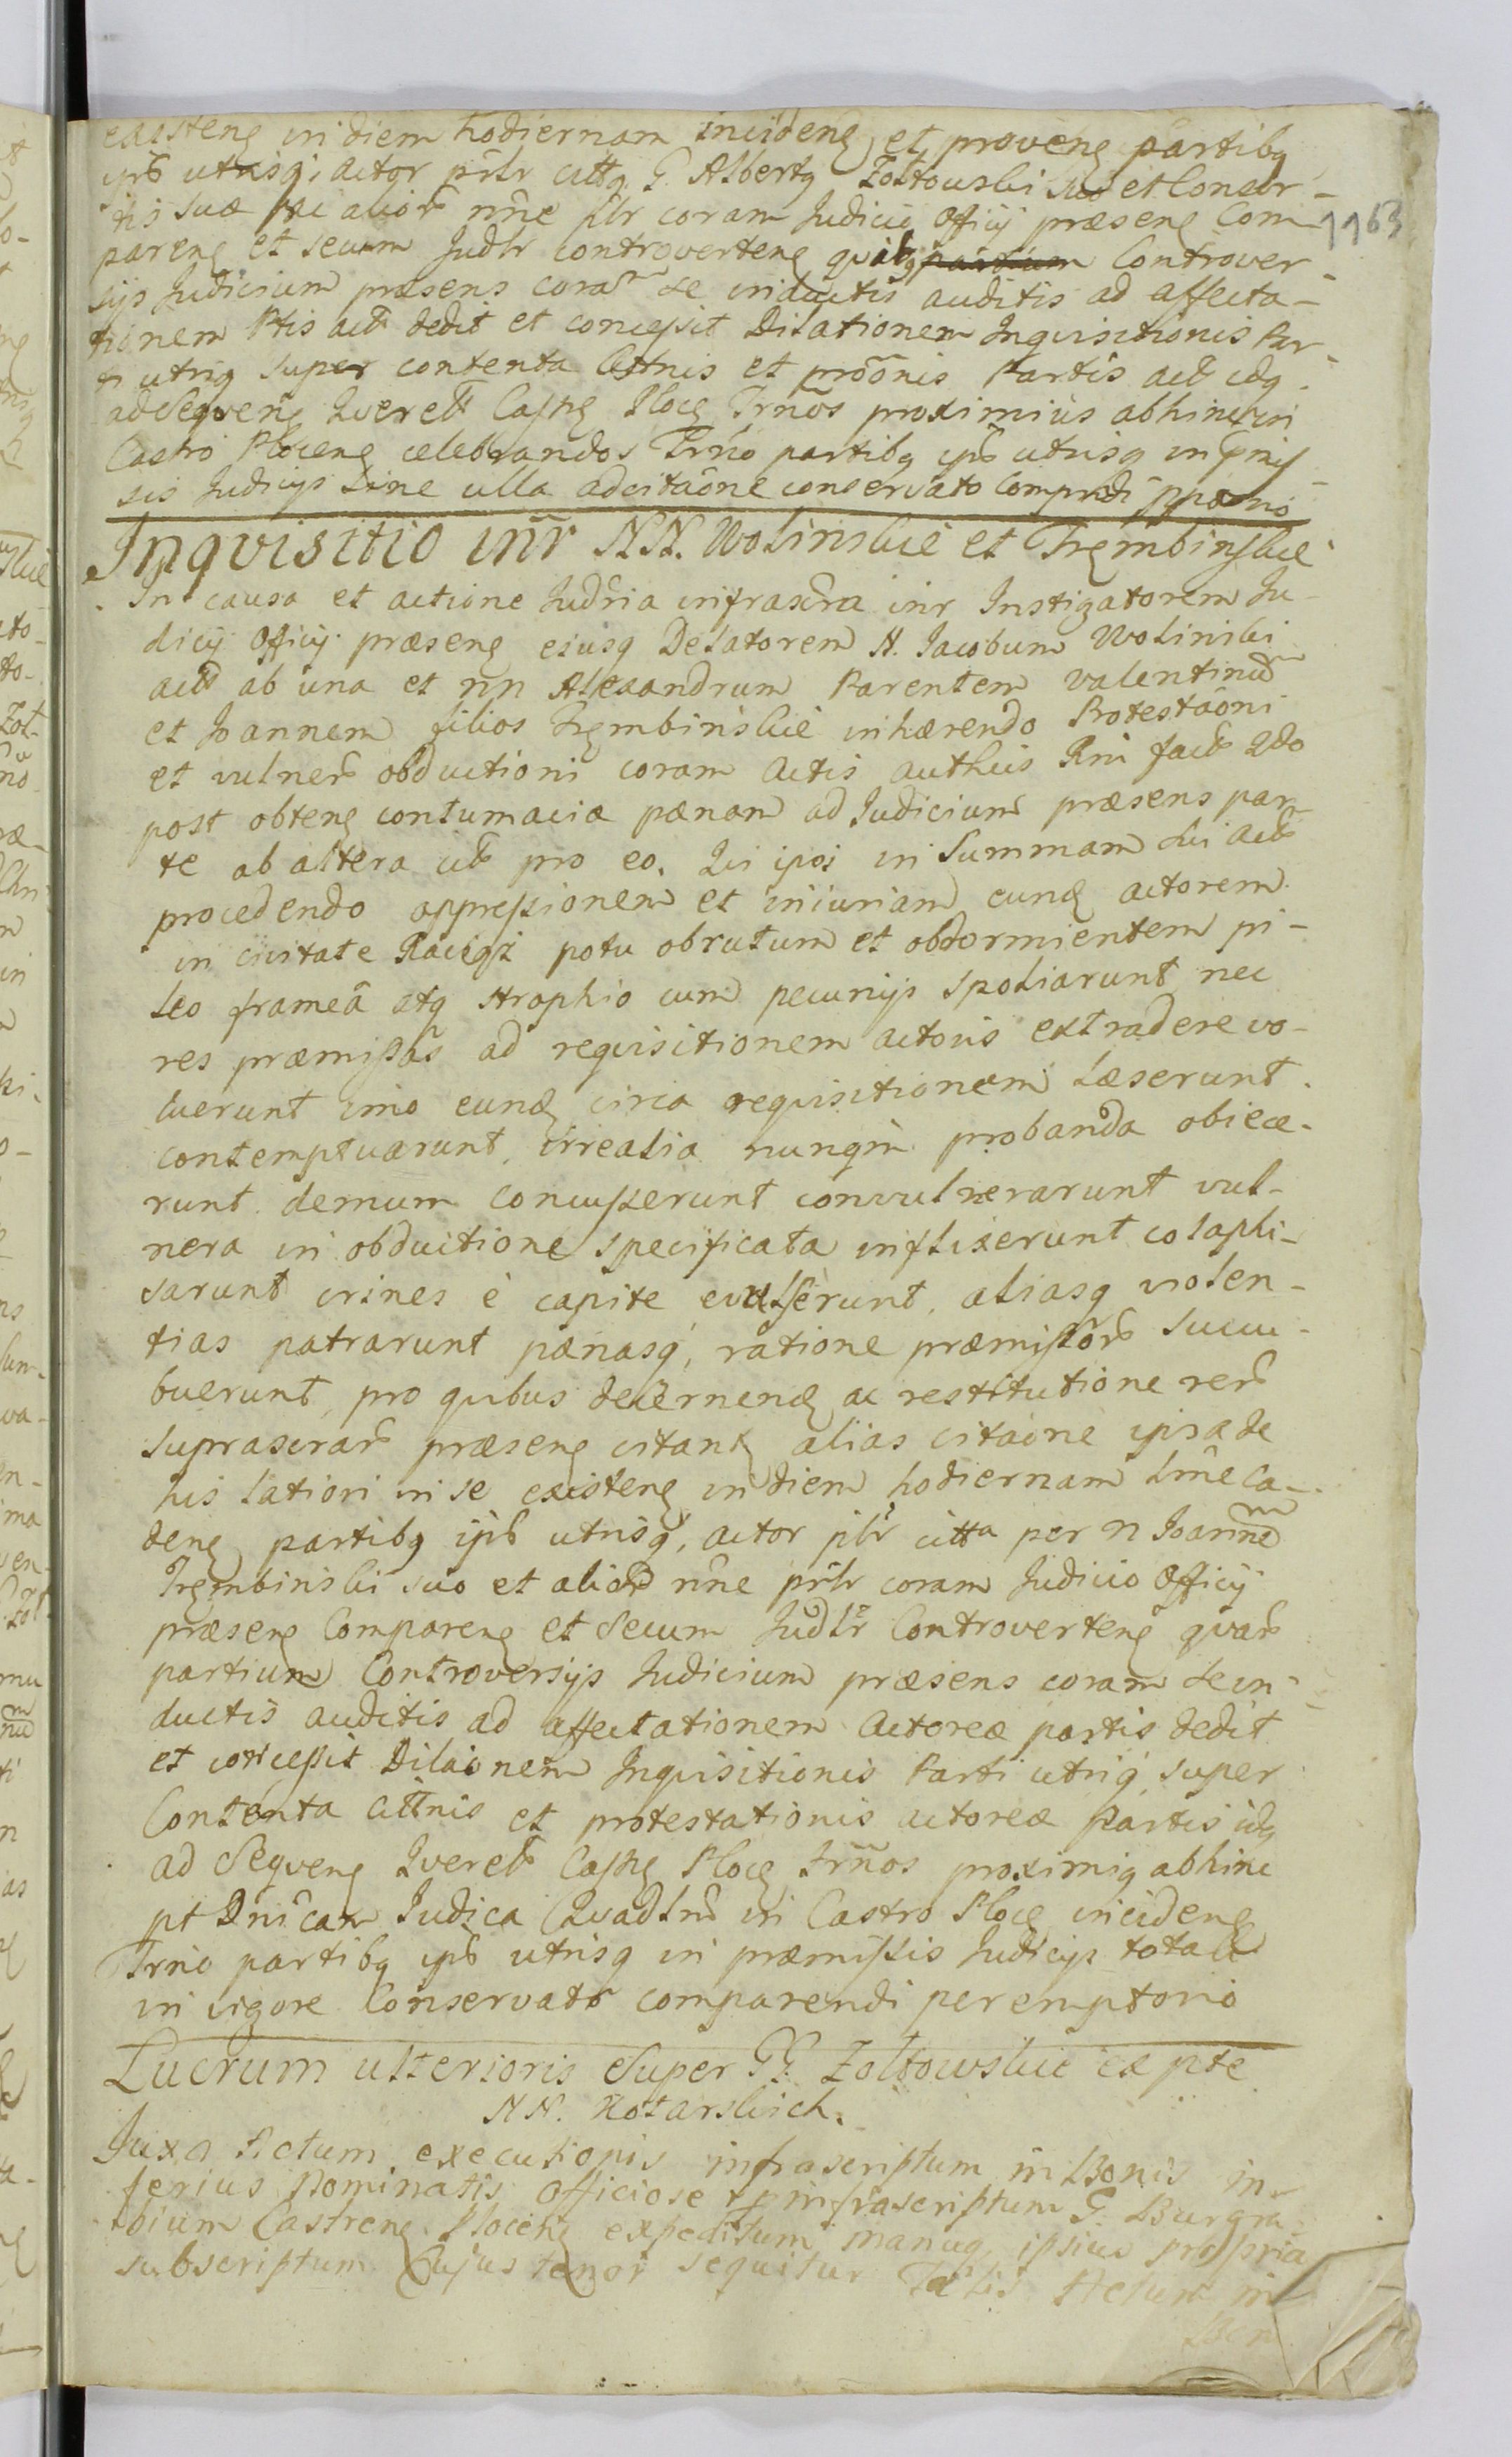 existen in diem hodiernam inciden et proven partibq
ipis utrisq; actor prlr citt G. Albertq Zołtowski suo et Consor-
tis suæ ac alior nne plr coram Judicio Officij præsen Com-
1163
paren et secum Judlr controverten quibq partium Controver-
sijs Judicium præsens coram se inductis auditis ad affecta-
tionem Ptis act dedit et concessit Dilationem Inquisitionis Par-
ti utriq super contenta Cittnis et proonis Partis act idq
ad Sequen Querel Capts Ploc Trnos proximius abhinc in
Castro Plocen celebrandos Trno partibq ipis utrisq in præmis-
sis Judicijs sine ulla adcitaone conservato Comprndi pptorio
Inquisitio intr NN. Wolinskie et Trembinskie
In causa et actione Judria infrascra intr Instigatorem Ju-
dicij Officij præsen eiusq Delatorem N. Jacobum Wolinski
act ab una et nn Alexandrum Parentem Valentinum
et Joannem filios Trembinskie inhærendo Protestaoni
et vulner obductioni coram Actis authcis Rni fact qdo
post obten contumaciæ pænam ad Judicium præsens par-
te ab altera cit pro eo. Qui ipsi in Summam sui act
procedendo oppressionem et iniuriam eund actorem
in civitate Raciąż potu obrutum et obdormientem pi-
leo frameâ atq strophio cum pecunijs spoliarunt nec
res præmissas ad requisitionem actoris extradere vo-
luerunt imo eund circa requisitionem læserunt
contemptuarunt, irrealia nunqm probanda obiece-
runt demum concusserunt convulnerarunt vul-
nera in obductione specificata inflixerunt colaphi-
sarunt crines è capite evulserunt, aliasq violen-
tias patrarunt pænasq, ratione præmissor succu-
buerunt, pro quibus decernend ac restitutione rer
suprascrar præsen citant alias citaone ipsa de
his latiori in se existen in diem hodiernam lme ca-
den partibq ipis utrisq, actor plr citta per N Joannem
Trembinski suo et alior nne prlr coram Judicio Officij
præsen Comparen et Secum Judlr Controverten quar
partium Controversijs Judicium præsens coram se in-
ductis auditis ad affectationem Actoreæ partis dedit
et concessit Dilaonem Inquisitionis Parti utriq super
Contenta Cittnis et protestationis actoreæ Partis idq
ad Sequen Querel Capts Ploc Trnos proximiq abhinc
pt Dnicam Judica Quadlm in Castro Ploc inciden
Trno partibq ipis utrisq in præmissis Judicijs totali
in vigore Conservato comparendi peremptorio
Lucrum ulterioris Super GG. Zołtowskie ex pte
NN. Kotarskich.
Juxa Actum executionis infrascriptum in Bonis in-
ferius Nominatis Officiose p infrascriptum G. Burgra-
bium Castren Plocen expeditum manuq ipsius propria
subscriptum Cujus tenor sequitur Talis Actum in
Bon